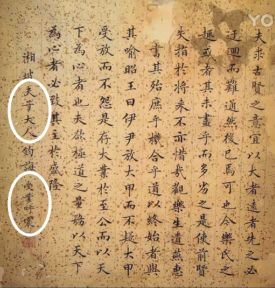 夫求古賢之意宜以大者遠者先之必
迂迴而難通然後已焉可也今樂氏之
趣或者其未盡乎而多劣之是使前賢
失指於將來不亦惜哉觀樂生遺燕惠
王書其殆庶乎機合乎道以終始者與
其喻昭王曰伊尹放大甲而不疑大甲
受放而不怨是存大業於至公而以天
下為心者也夫欲極道之量務以天下
為心者必致其主於盛隆
湘坡 大人 誨
YO